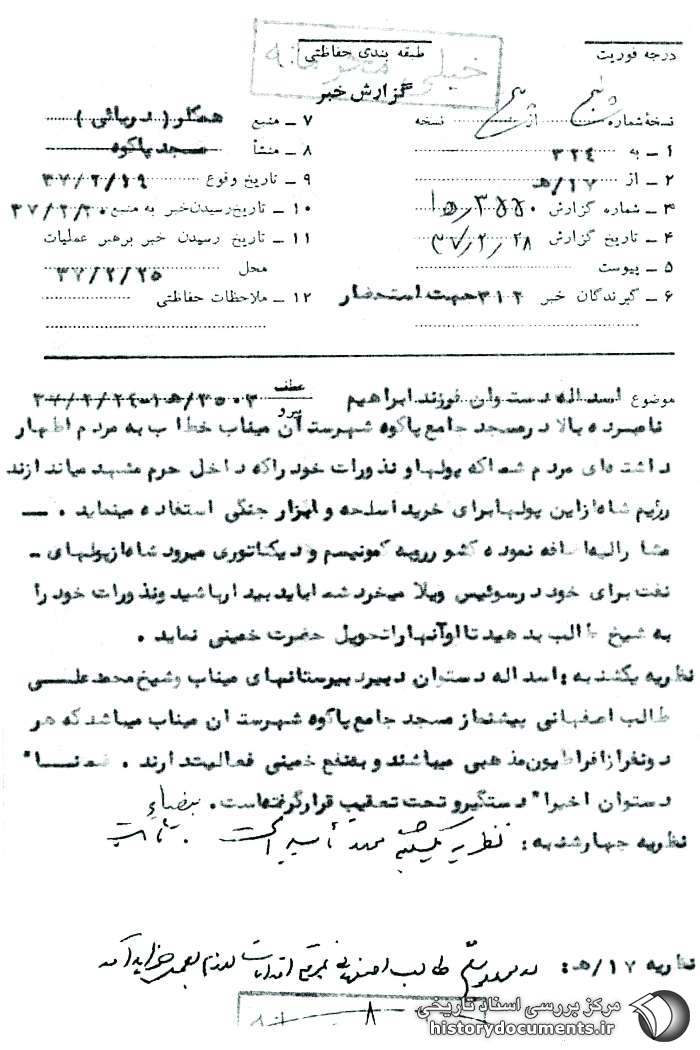 درجه فوریت
طبقه بندی حفاظتی
خیلی محرمانه
گزارش خبر
نسخهٔ شماره پنج از پنج نسخه
۱ ــ به ۳۲۴
۲ ــ از ۱۷/هـ
۳ ــ شماره گزارش ۱۵ر۳۵۵۰
۴ ــ تاریخ گزارش ۳۷/۲/۲۸
۵ ــ پیوست
۶ ــ گیرندگان خبر ۳۱۲ جهت استحضار
۷ ــ منبع همکار (دریائی)
۸ ــ منشأ مسجد پاکوه
۹ ــ تاریخ وقوع ۳۷/۲/۱۹
۱۰ ــ تاریخ رسیدن خبر به منبع ۳۷/۲/۲۰
۱۱ ــ تاریخ رسیدن خبر برهبر عملیات
محل ۳۷/۲/۲۵
۱۲ ــ ملاحظات حفاظتی
موضوع اسداله دستوان فرزند ابراهیم
عطف
پیرو
نامبرده بالا درمسجد جامع پاکوه شهرستان میناب خطاب به مردم اظهار
داشته ای مردم شماکه پولها و نذورات خود راکه داخل حرم مشهد میاندازند
رژیم شاه ازاین پولهابرای خرید اسلحه و ابزار جنگی استفاده مینماید . ــ
مشارالیه اضافه نموده کشور روبه کمونیسم و دیکتاتوری میرود شاه ازپولهای ــ
نفت برای خود درسوئیس ویلا میخرد شما باید بیدارباشید ونذورات خود را
به شیخ طالب بدهید تا اوآنهاراتحویل حضرت خمینی نماید .
نظریه یکشنبه : اسداله دستوان دبیردبیرستانهای میناب وشیخ محمد علی
طالب اصفهانی پیشنماز مسجد جامع پاکوه شهرستان میناب میباشد که هر
دونفرازافراطیون مذهبی میباشند و بنفع خمینی فعالیت دارند . ضمنا"
دستوان اخیرا" دستگیرو تحت تعقیب قرارگرفته است . بیضاء
نظریه چهارشنبه : نظریه یکشنبه مورد تأیید است .
نظریه ۱۷/هـ : در مورد شیخ طالب اصفهانی اقدامات لازم بعمل خواهد آمد
۸
مرکز بررسی اسناد تاریخی
historydocuments.ir